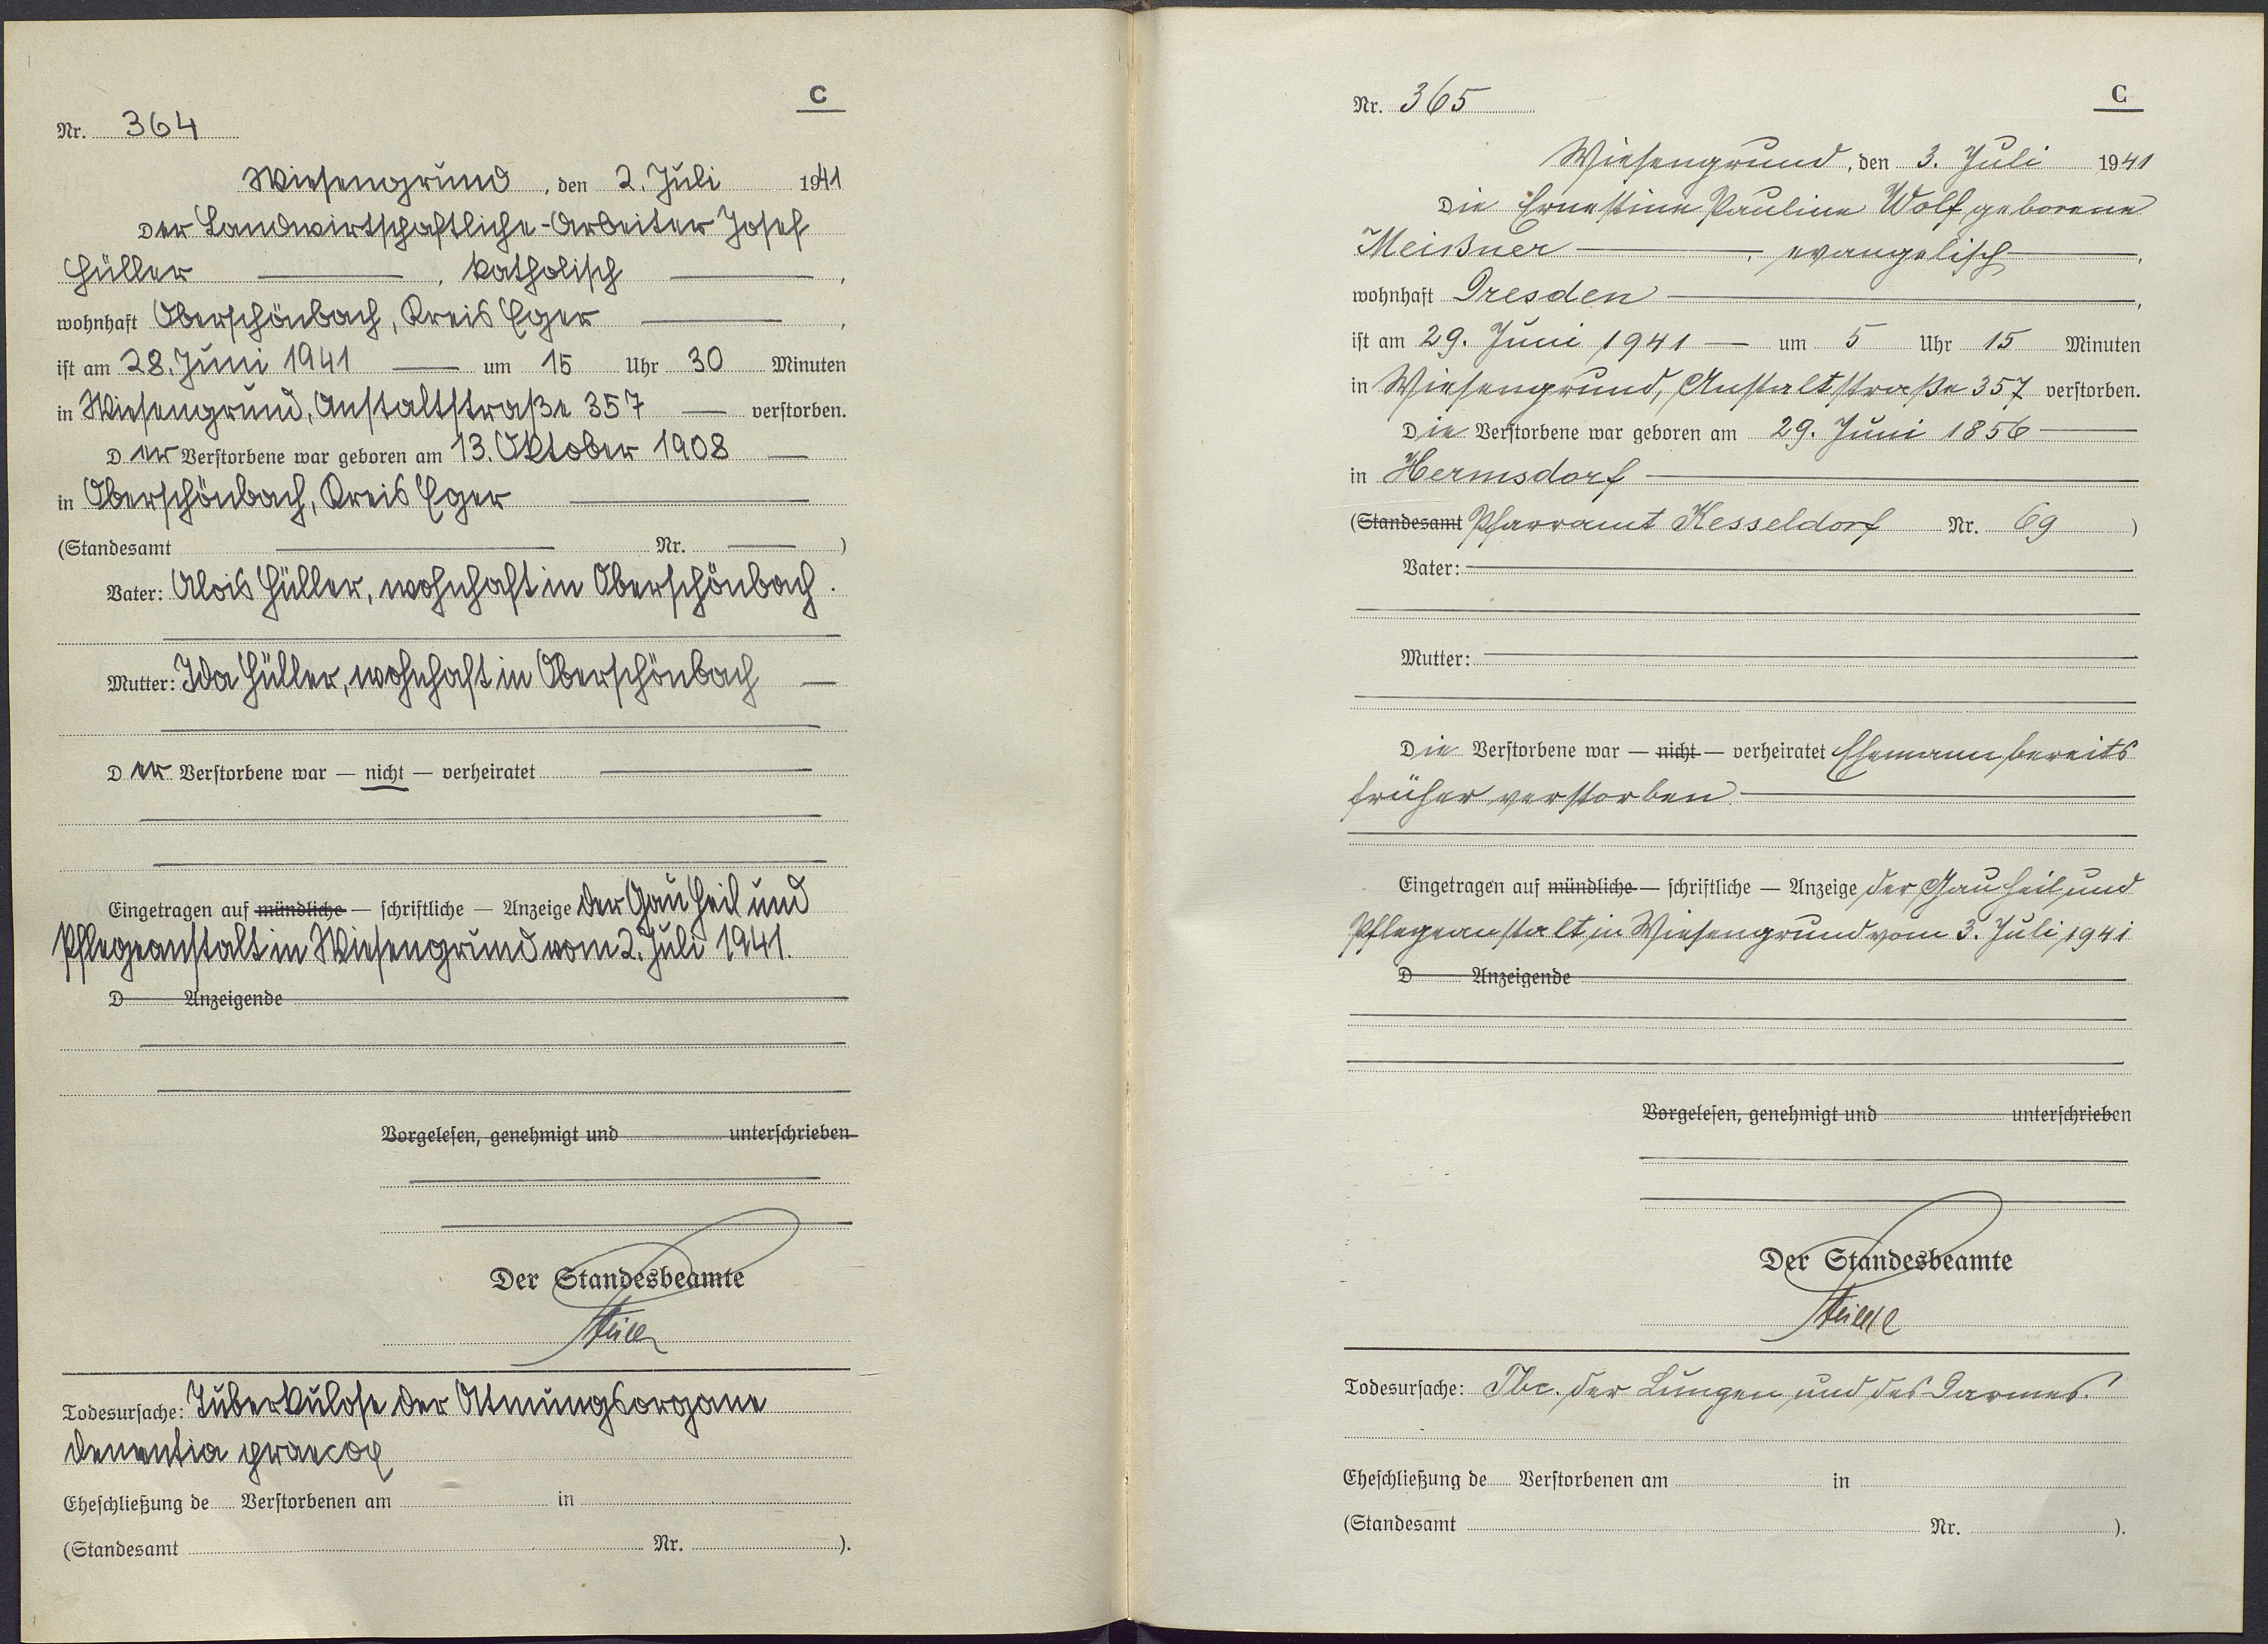 C
Nr. 364
Wiesengrund, den 2. Juli 1941
Der Landwirtschaftliche-Arbeiter Josef
Hüller, katholisch,
wohnhaft Oberschönbach, Kreis Eger,
ist am 28. Juni 1941 um 15 Uhr 30 Minuten
in Wiesengrund, Anstaltstraße 357 verstorben.
Der Verstorbene war geboren am 13. Oktober 1908
in Oberschönbach, Kreis Eger
(Standesamt Nr. )
Vater: Alois Hüller, wohnhaft in Oberschönbach.
Mutter: Ida Hüller, wohnhaft in Oberschönbach
Der Verstorbene war — nicht — verheiratet
Eingetragen auf mündliche — schriftliche — Anzeige der Gau Heil und
Pflegeanstalt in Wiesengrund vom 2. Juli 1941.
D Anzeigende
Vorgelesen, genehmigt und unterschrieben
Der Standesbeamte
Todesursache: Tuberkulose der Atmungsorgane
dementia praecox
Eheschließung de Verstorbenen am in
(Standesamt Nr. ).
C
Nr. 365
Wiesengrund, den 3. Juli 1941
Die Ernestine Pauline Wolf geborene
Meißner, evangelisch,
wohnhaft Dresden,
ist am 29. Juni 1941 um 5 Uhr 15 Minuten
in Wiesengrund, Anstaltstraße 357 verstorben.
Die Verstorbene war geboren am 29. Juni 1856
in Hermsdorf
(Standesamt Pfarramt Kesseldorf Nr. 69 )
Vater:
Mutter:
Die Verstorbene war — nicht — verheiratet Ehemann bereits
früher verstorben.
Eingetragen auf mündliche — schriftliche — Anzeige der Gau Heil und
Pflegeanstalt in Wiesengrund vom 3. Juli 1941
D Anzeigende
Vorgelesen, genehmigt und unterschrieben
Der Standesbeamte
Todesursache: Tbc. der Lungen und des Darmes.
Eheschließung de Verstorbenen am in
(Standesamt Nr. ).